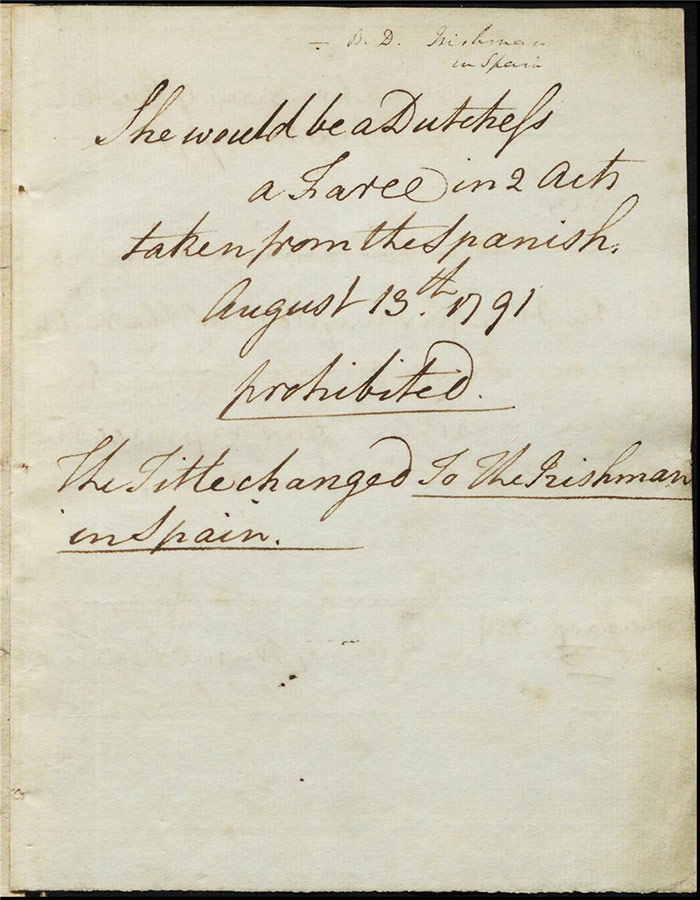 = B. D. Irishman
in Spain
She would be a Dutchess
a Farce in 2 Acts
taken from the Spanish.
August 13th. 1791
prohibited.
The Title changed To The Irishman
in Spain.